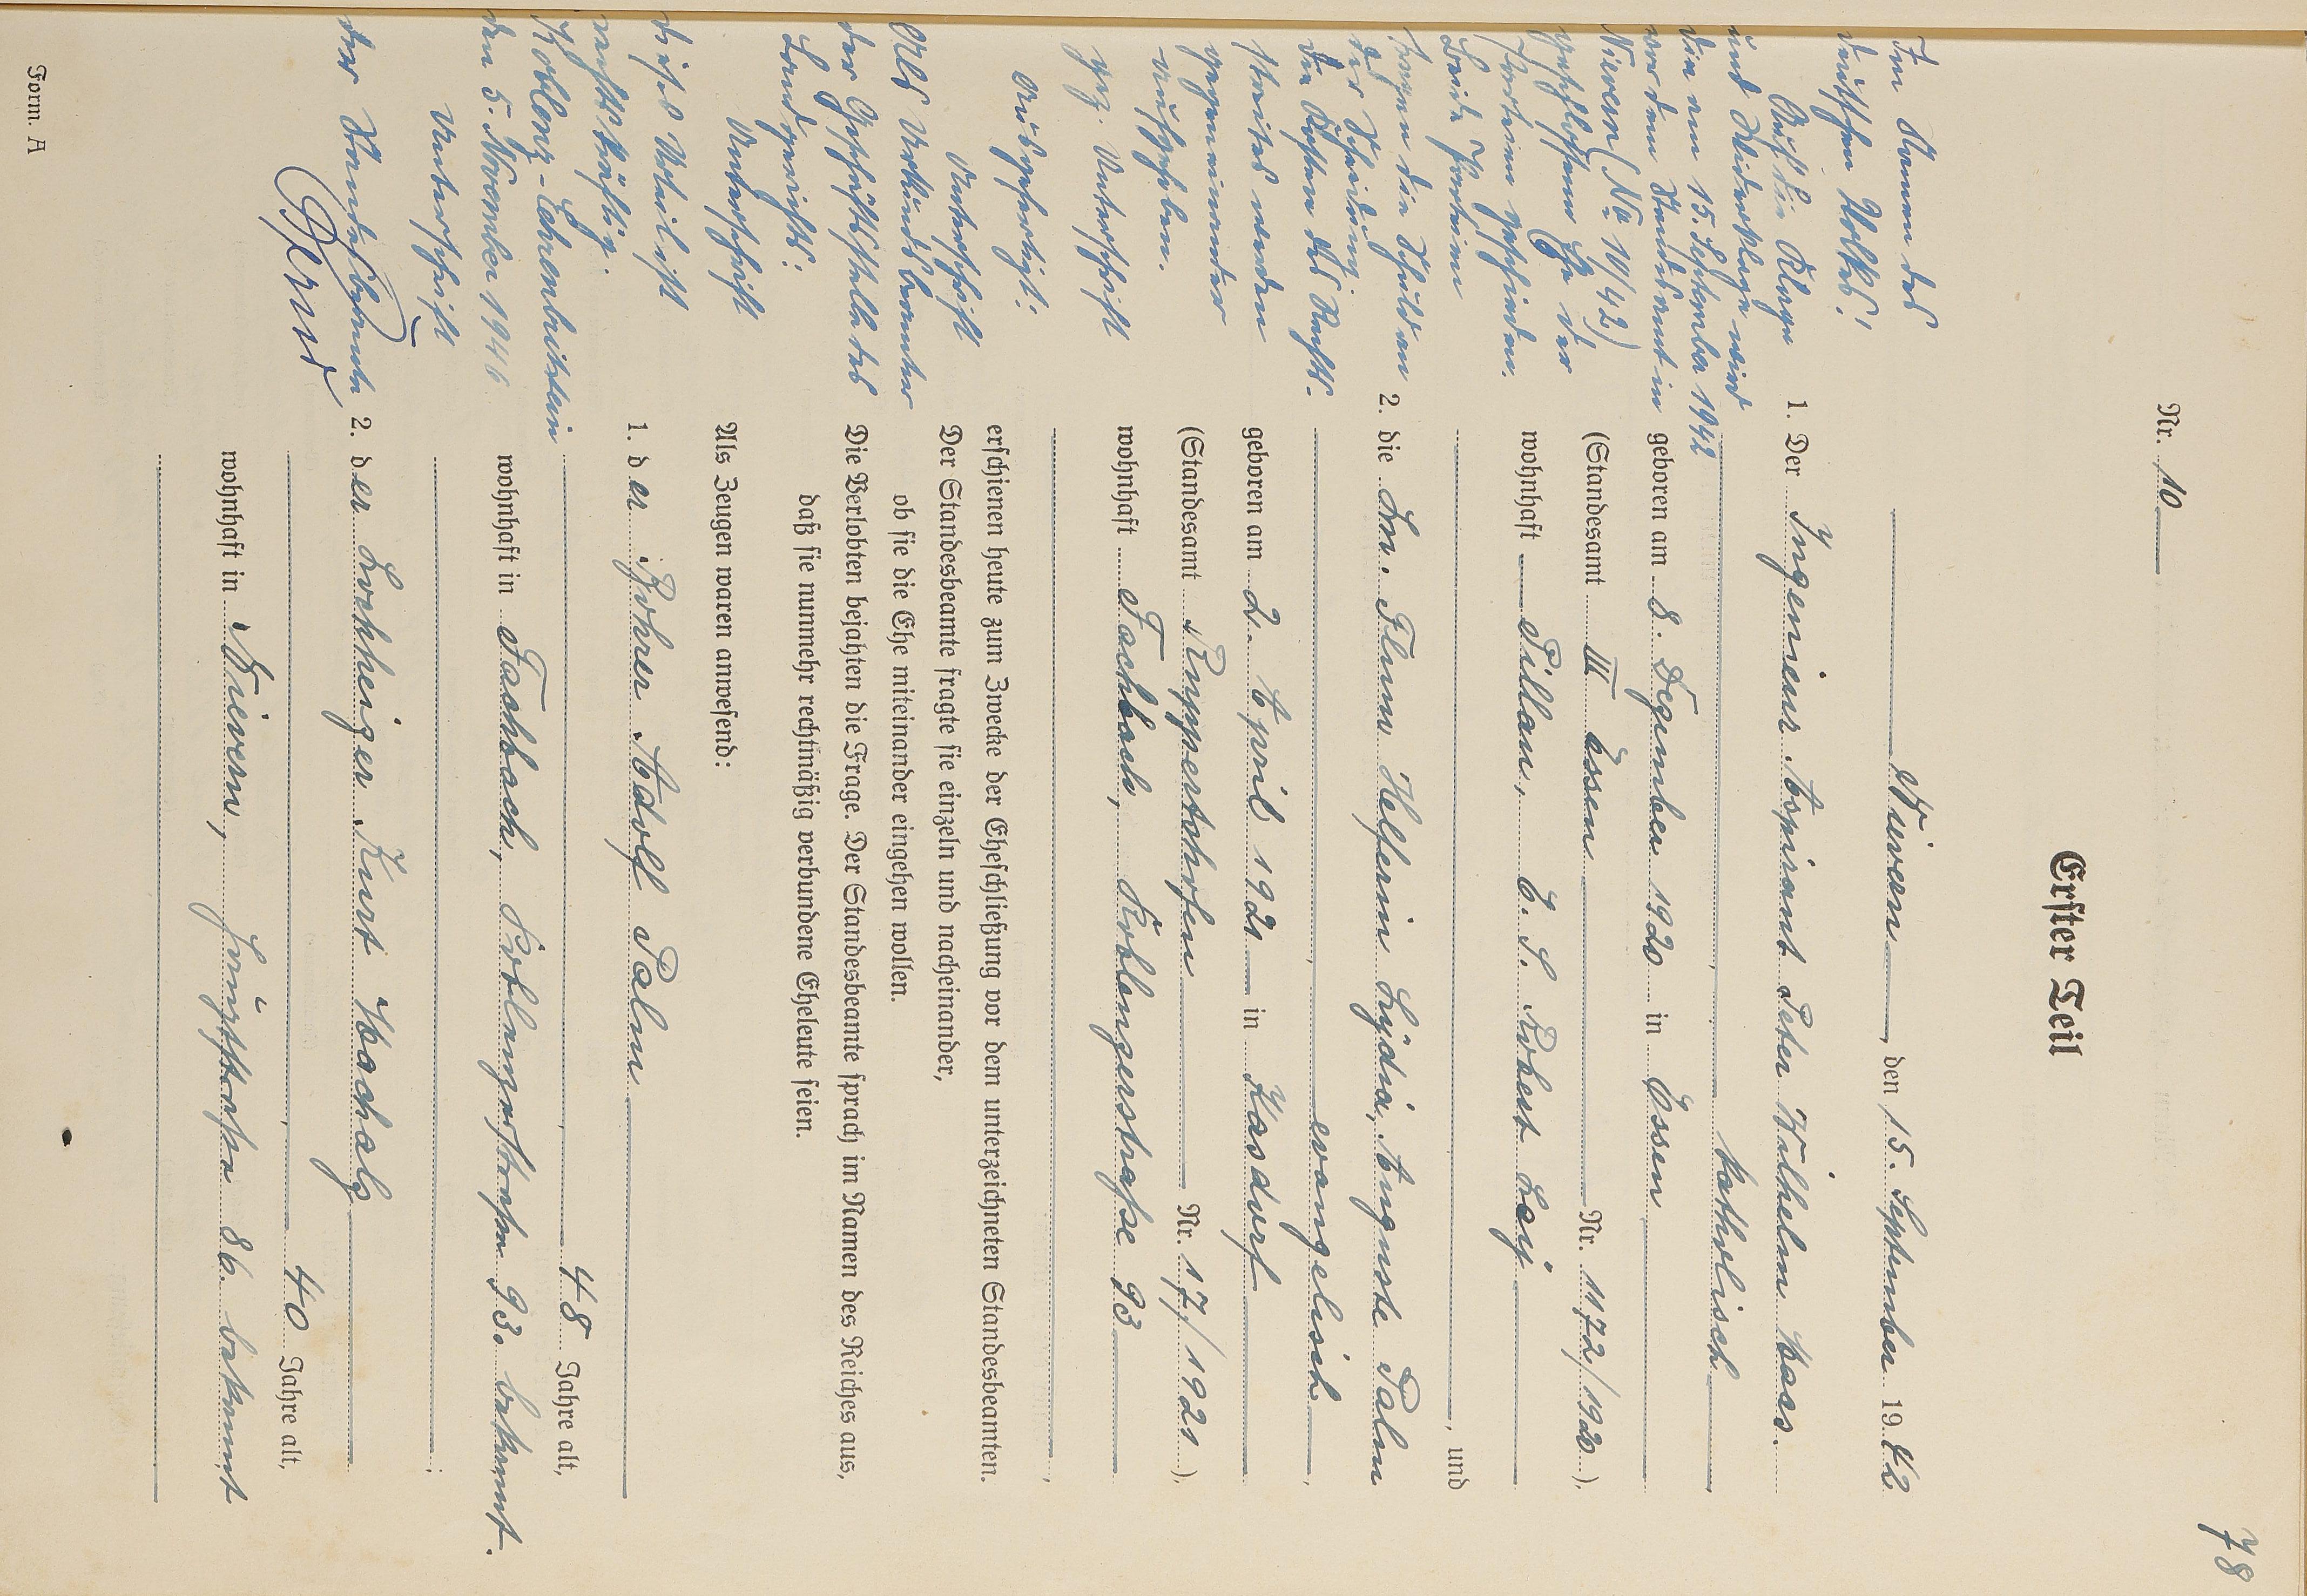 78
Nr. 10
Erster Teil
Nievern, den 15. September 1942
1. Der Ingenieur Aspirant Peter Wilhelm Haas.
katholisch
geboren am 8. Dezember 1920 in Essen
(Standesamt III Essen Nr. 1172/1920),
wohnhaft Pillau,
und
2. die Lw. Flum Helferin Lydia, Auguste Palm
evangelisch,
geboren am 2. April 1921 in Kasdorf
(Standesamt Ruppertshofen Nr. 17/1921),
wohnhaft Fachbach, Koblenzerstraße 93
erschienen heute zum Zwecke der Eheschließung vor dem unterzeichneten Standesbeamten.
Der Standesbeamte fragte sie einzeln und nacheinander,
ob sie die Ehe miteinander eingehen wollen.
Die Verlobten bejahten die Frage. Der Standesbeamte sprach im Namen des Reiches aus,
daß sie nunmehr rechtmäßig verbundene Eheleute seien.
Als Zeugen waren anwesend:
1. der Bohrer Adolf Palm
48 Jahre alt,
wohnhaft in Fachbach, Koblenzerstraße 93. bekannt.
2. der Kurt
40 Jahre alt,
wohnhaft in Nievern, Hauptstraße 86. bekannt
Im Namen des
deutschen Volkes!
Auf die Klage
und Widerklage wird
die am 15. September 1942
vor dem Standesamt in
Nievern (No 10/42)
geschlossene Ehe der
Parteien geschieden.
Beide Parteien
tragen die Schuld an
der Scheidung.
Die Kosten des Rechts-
streites werden
gegeneinander
aufgehoben.
gez. Unterschrift
Ausgefertigt:
Unterschrift
Als Urkundsbeamter
der Geschäftsstelle des
Landgerichts:
Unterschrift
Dieses Urteil ist
rechtskräftig.
Koblenz-Ehrenbreitstein
den 5. November 1946
Unterschrift
Der Standesbeamte
Form. A